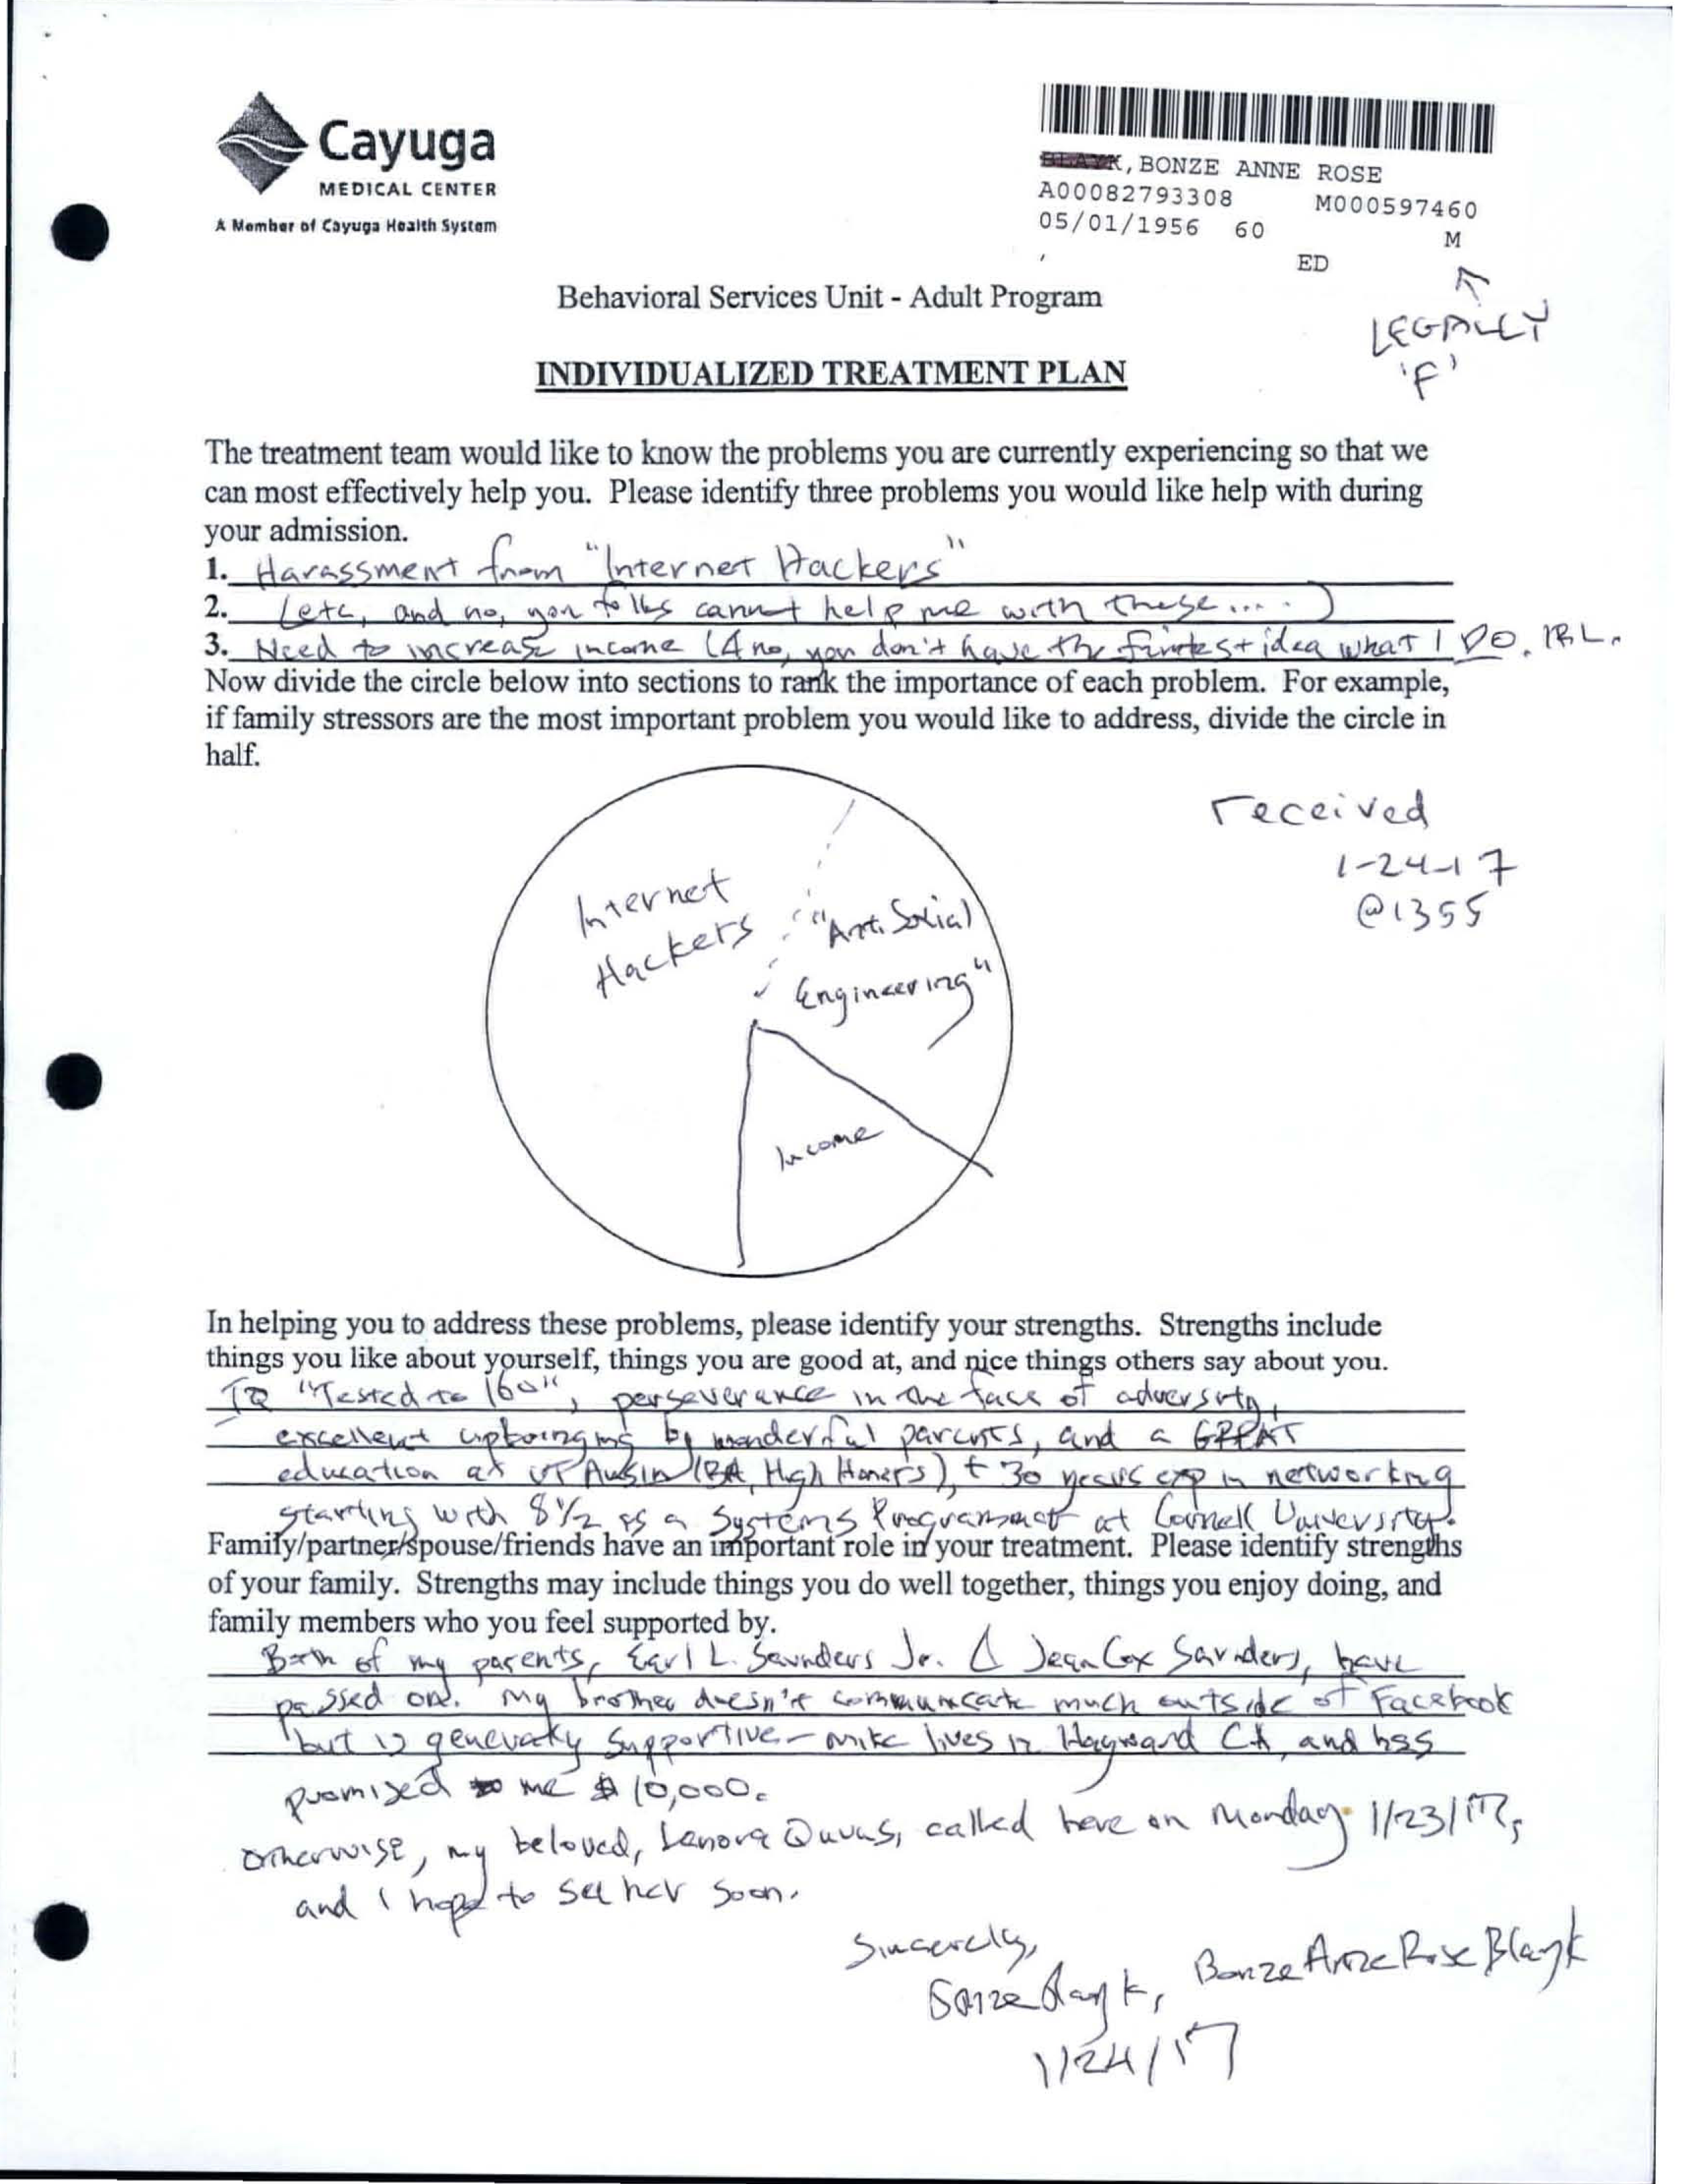 Cayuga
MEDICAL CENTER
A Member of Cayuga Health System
, BONZE ANNE ROSE
A00082793308 M000597460
05/01/1956 60 M
, ED
LEGALLY
'F'
Behavioral Services Unit - Adult Program
INDIVIDUALIZED TREATMENT PLAN
The treatment team would like to know the problems you are currently experiencing so that we
can most effectively help you. Please identify three problems you would like help with during
your admission.
1. Harassment from "Internet Hackers"
2. (etc, and no, you folks cannot help me with these....)
3. Need to increase income (& no, you don't have the idea what I DO. IRL.
Now divide the circle below into sections to rank the importance of each problem. For example,
if family stressors are the most important problem you would like to address, divide the circle in
half.
received
1-24-17
@1355
Internet
Hackers
"Anti Social
Engineering"
Income
In helping you to address these problems, please identify your strengths. Strengths include
things you like about yourself, things you are good at, and nice things others say about you.
IQ "Tested to 160", perseverance in the face of adversity,
excellent upbringing by wonderful parents, and a GREAT
education at UT Austin (BA, High Honors), + 30 years exp in networking
starting with 8 1/2 as a Systems Programmer at Cornell University.
Family/partner/spouse/friends have an important role in your treatment. Please identify strengths
of your family. Strengths may include things you do well together, things you enjoy doing, and
family members who you feel supported by.
Both of my parents, Earl L. Saunders Jr. & Jean Cox Saunders, have
passed on. My brother doesn't communicate much outside of Facebook
but is generally supportive - Mike lives in Hayward CA, and has
promised me $10,000.
Otherwise, my beloved, Lenora, called here on Monday 1/23/17,
and I hope to see her soon.
Sincerely,
Bonze Blayk, Bonze Anne Rose Blayk
1/24/17